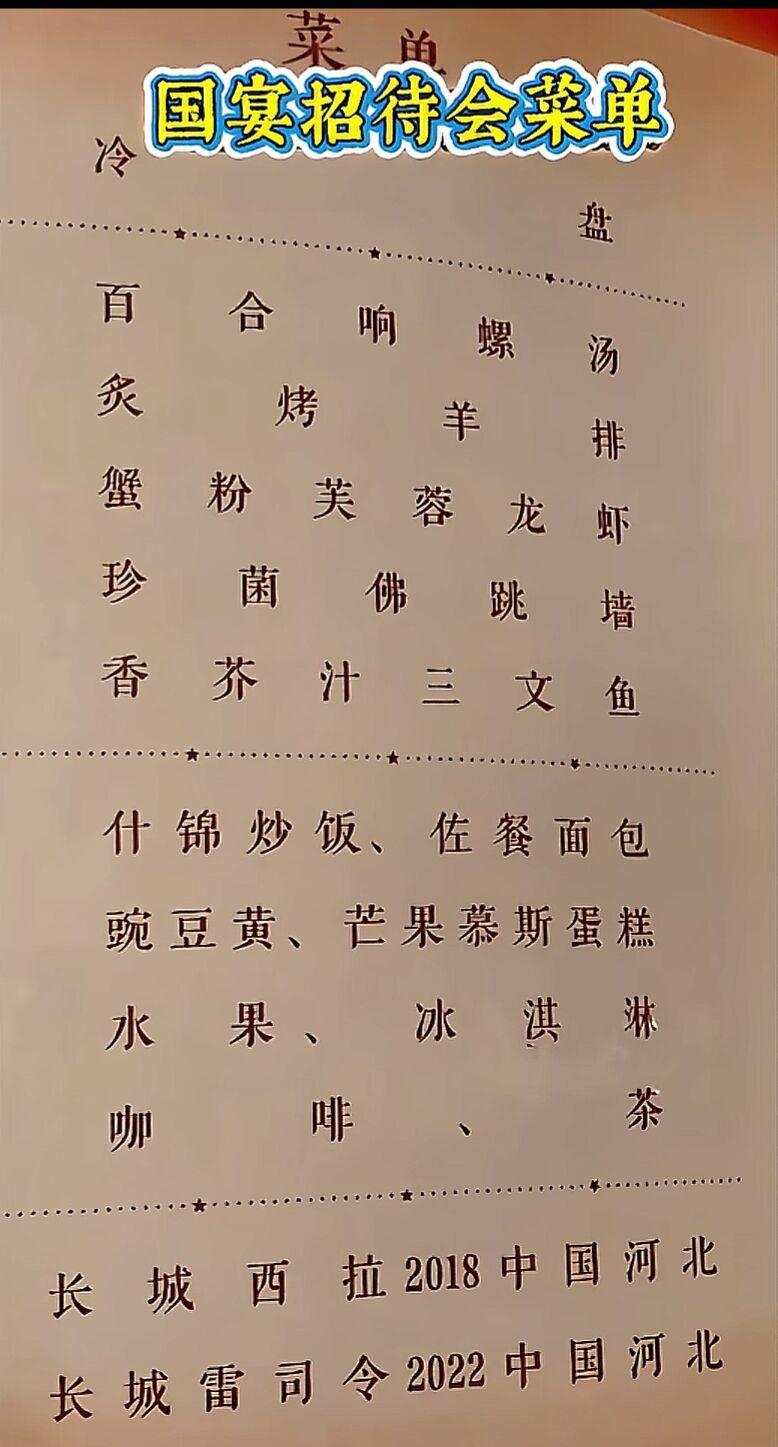 菜单
国宴招待会菜单
冷盘
百合响螺汤
炙烤羊排
蟹粉芙蓉龙虾
珍菌佛跳墙
香芥汁三文鱼
什锦炒饭、佐餐面包
豌豆黄、芒果慕斯蛋糕
水果、冰淇淋
咖啡、茶
长城西拉2018中国河北
长城雷司令2022中国河北